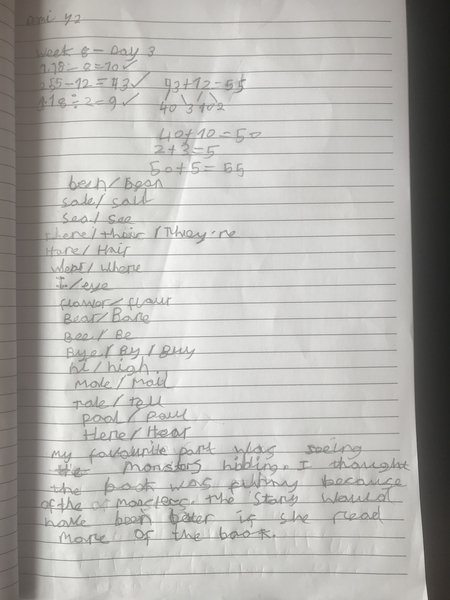 Y2
Week 8 - Day 3
1 18 - 8 = 10 ✓
2 55 - 12 = 43 ✓ 43 + 12 = 55
3 18 ÷ 2 = 9 ✓ 40 3 10 2
40 + 10 = 50
2 + 3 = 5
50 + 5 = 55
been / Bean
sale / sail
Sea / see
there / their / They're
Hare / Hair
Wear / where
I / eye
flower / flour
Bear / Bare
Bee / Be
Bye / By / Buy
hi / high
Male / Mail
tale / tail
Here / Hear
My favourite part was seeing
the monsters hiding. I thought
the book was funny because
of the monsters. the story would
have been beter if she read
More of the book.